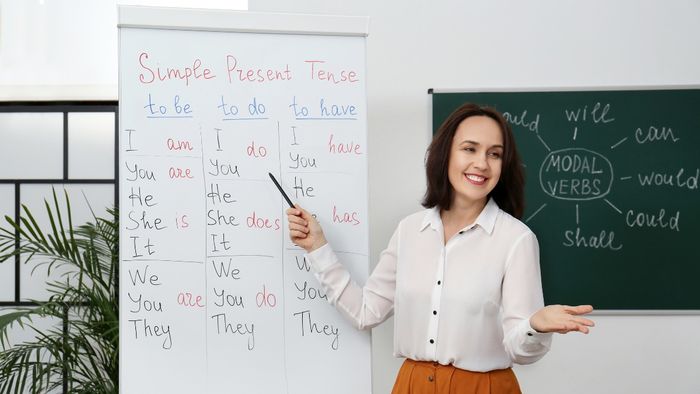 Simple Present Tense
to be
I am
You are
He
She is
It
We
You are
They
to do
I do
You
He
She does
It
We
You do
They
to have
I have
You
He
has
We
You
They
MODAL
VERBS
will
can
would
could
shall